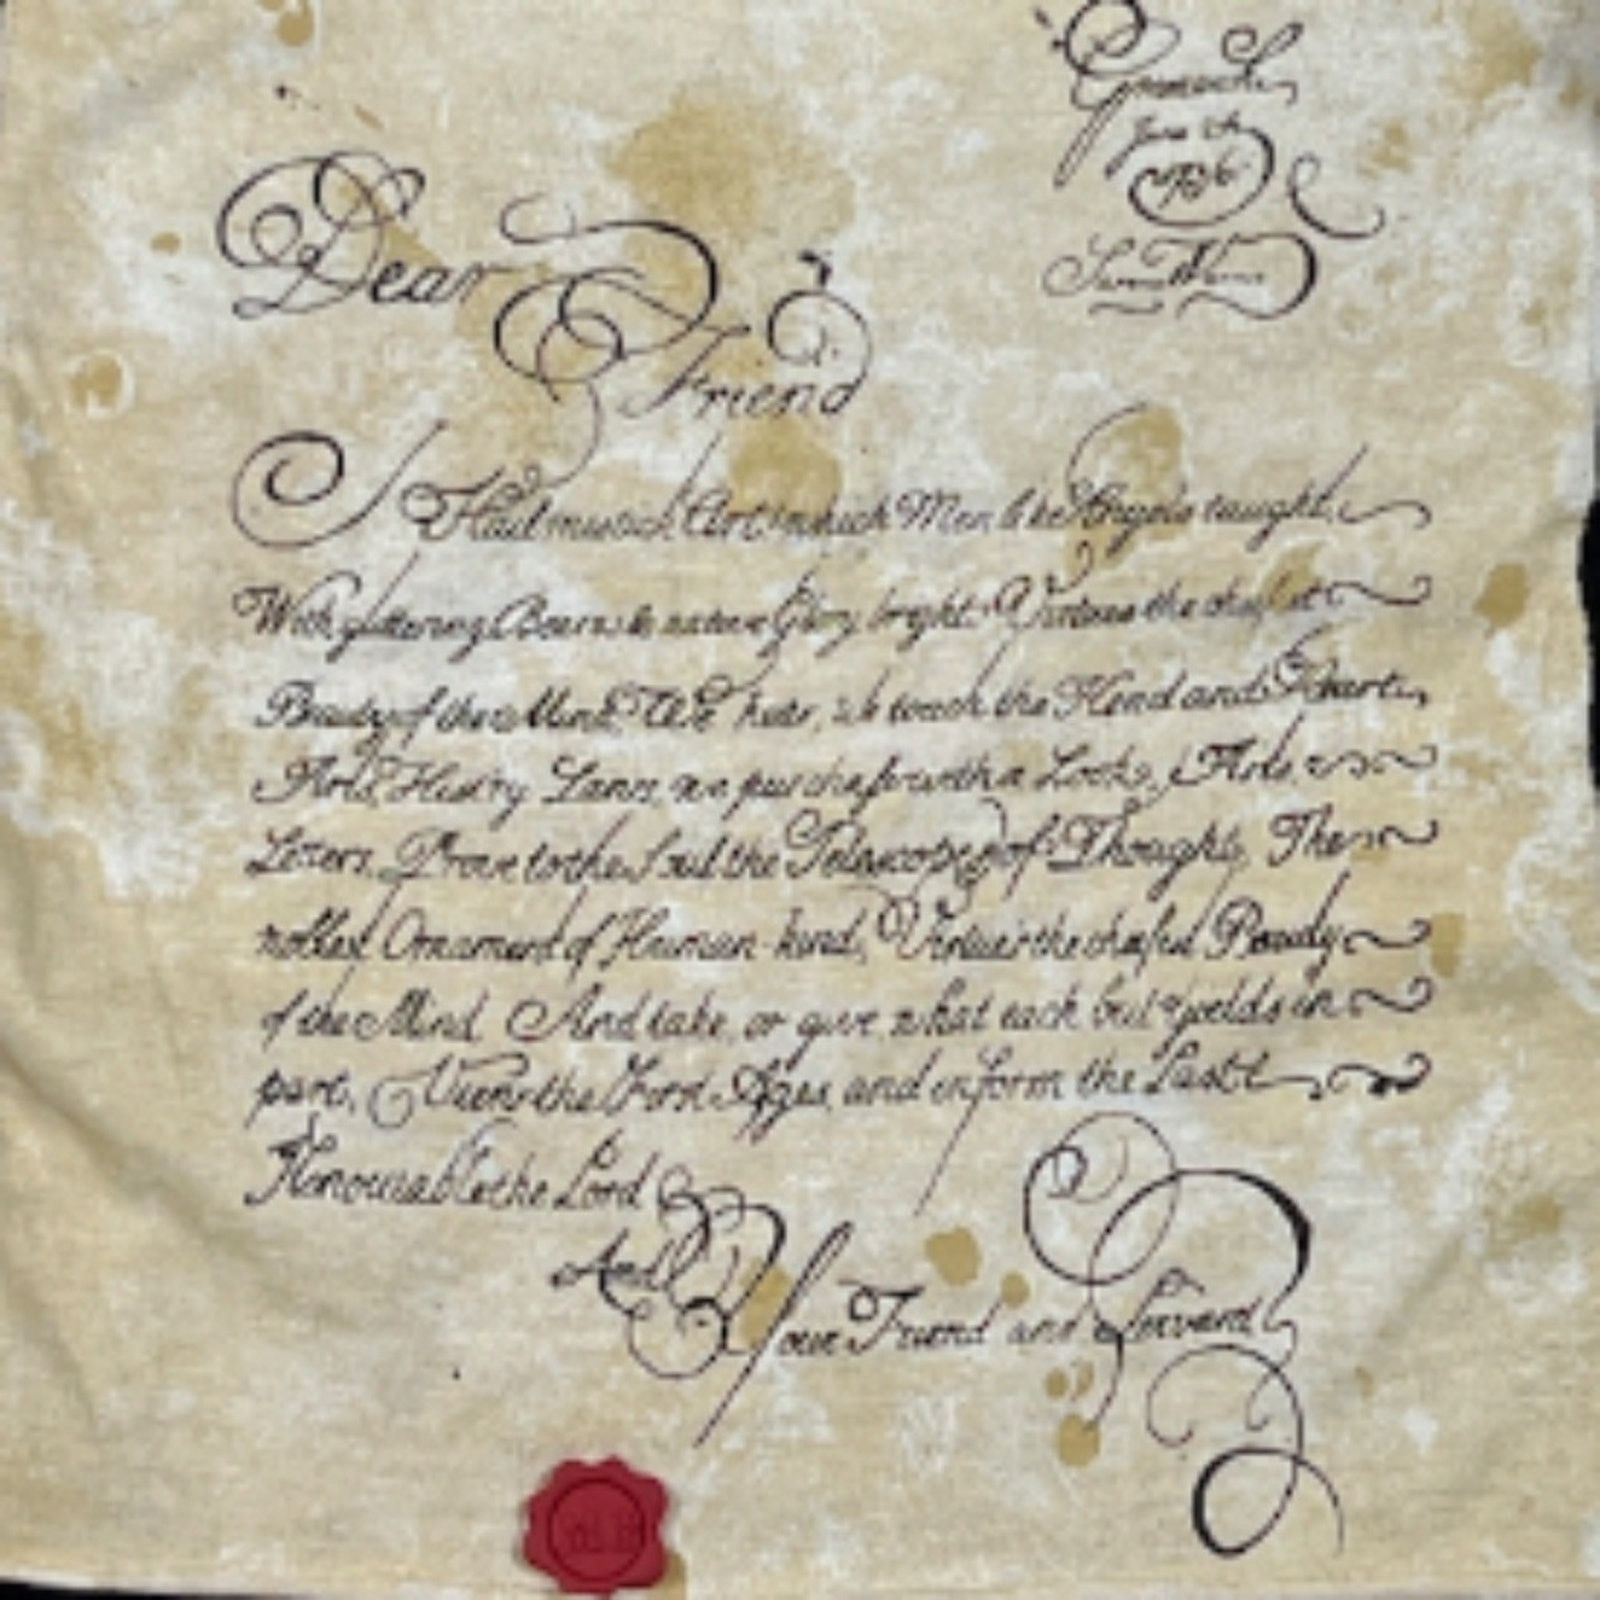 Dear
Friend
Hail mistick Art which Men like Angels taught
With glittering Beams & native Glory bright. Virtues the chafest
Beauty of the Mind. We hear, we touch the Head and Heart
And, we purchase with a Look, Arts
Letters, Prove to the Soul the Telescope of Thought, The
noblest Ornament of Human-kind, Virtue's the chafest Beauty
of the Mind And take, or give what each but yelds in
part, View the First Ages, and inform the Last
Honourable the Lord
And
Your Friend and Servant